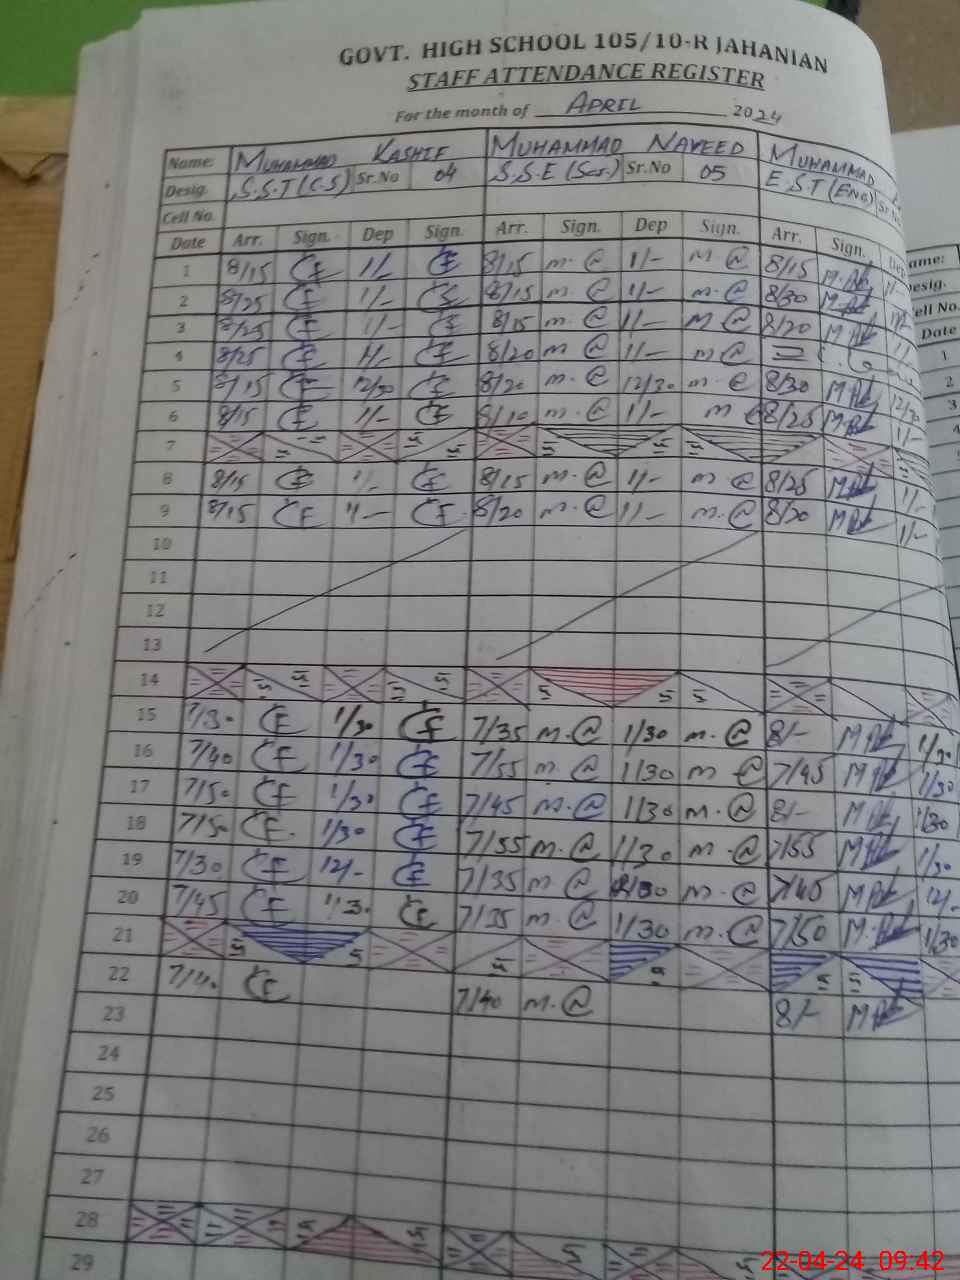 GOVT. HIGH SCHOOL 105/10-R JAHANIAN
STAFF ATTENDANCE REGISTER
For the month of APRIL 2024
Name: MUHAMMAD KASHIF MUHAMMAD NAVEED MUHAMMAD
Desig. S.S.T (C.S) Sr.No 04 S.S.E (Sci.) Sr.No 05 E.S.T (ENG) Sr.
Cell No.
Date Arr. Sign. Dep Sign. Arr. Sign. Dep Sign. Arr. Sign. Dep
1 8/15 CF 1/- CF 8/15 m.@ 1/- m.@ 8/15
2 8/25 CF 1/- CF 8/15 m.@ 1/- m.@ 8/30
3 8/25 CF 1/- CF 8/15 m.@ 1/- m@ 8/20
4 8/25 CF 1/- CF 8/20 m@ 1/- m@
5 8/15 CF 12/30 CF 8/20 m.@ 12/30 m.@ 8/30 12/30
6 8/15 CF 1/- CF 8/10 m.@ 1/- m 8/25 1/-
7
8 8/15 CF 1/- CF 8/15 m.@ 1/- m@ 8/25 1/-
9 8/15 CF 1/- CF 8/20 m.@ 1/- m.@ 8/20 1/-
10
11
12
13
14
15 7/30 CF 1/30 CF 7/35 m.@ 1/30 m.@ 8/- 1/30
16 7/40 CF 1/30 CF 7/55 m.@ 1/30 m@ 7/45 1/30
17 7/50 CF 1/30 CF 7/45 m.@ 1/30 m.@ 8/- 1/30
18 7/50 CF. 1/30 CF 7/55 m.@ 1/30 m.@ 7/55 1/30
19 7/30 CF 12/- CF 7/35 m@ m.@ 7/45 12/-
20 7/45 CF 1/30 CF 7/35 m.@ 1/30 m.@ 7/50 1/30
21
22 7/40 CF 7/40 m.@ 8/-
23
24
25
26
27
28
29
ame:
esig.
ell No.
Date
1
2
3
22-04-24 09:42